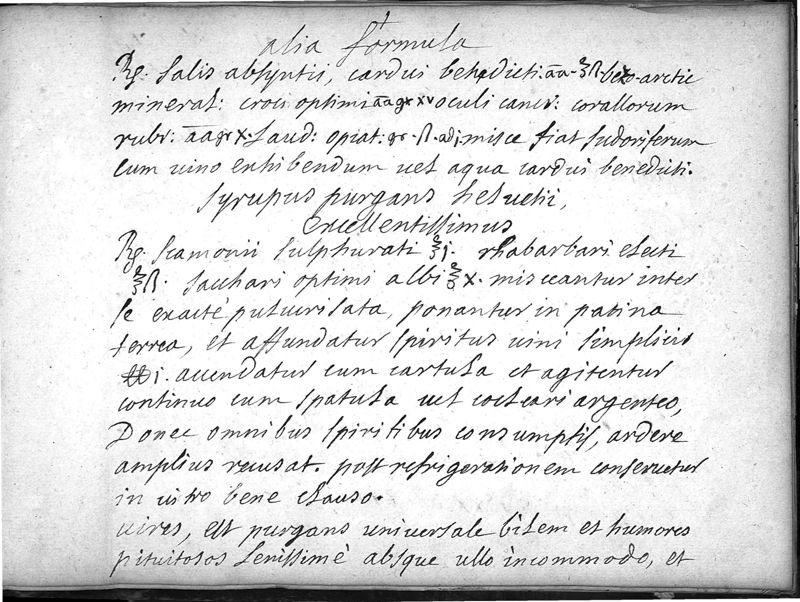 alia formula
Rg. Salis absyntii, cardui benedicti. aa - ℥ß. bezoartic
mineral: croci optimi aa gr xv oculi cancr: corallorum
rubr: aa gr x. Laud: opiat. gr. ß. ad j misce fiat sudoriferum
cum vino exhibendum vel aqua cardui benedicti.
syrupus purgans helvetii,
excellentissimus
Rg. Scamonii sulphurati ℥j. rhabarbari electi
℥ß. sacchari optimi albi ℥x. misceantur inter
se exacté pulverisata, ponantur in patina
terrea, et affundatur spiritus vini simplicis
℔ j. accendatur cum cartula et agitentur
continuo cum spatula vel cocleari argenteo,
Donec omnibus spiritibus consumptis, ardere
amplius recusat. post refrigerationem conservetur
in vitro bene clauso.
vires, est purgans universale bilem et humores
pituitosos lenissimè absque ullo incommodo, et